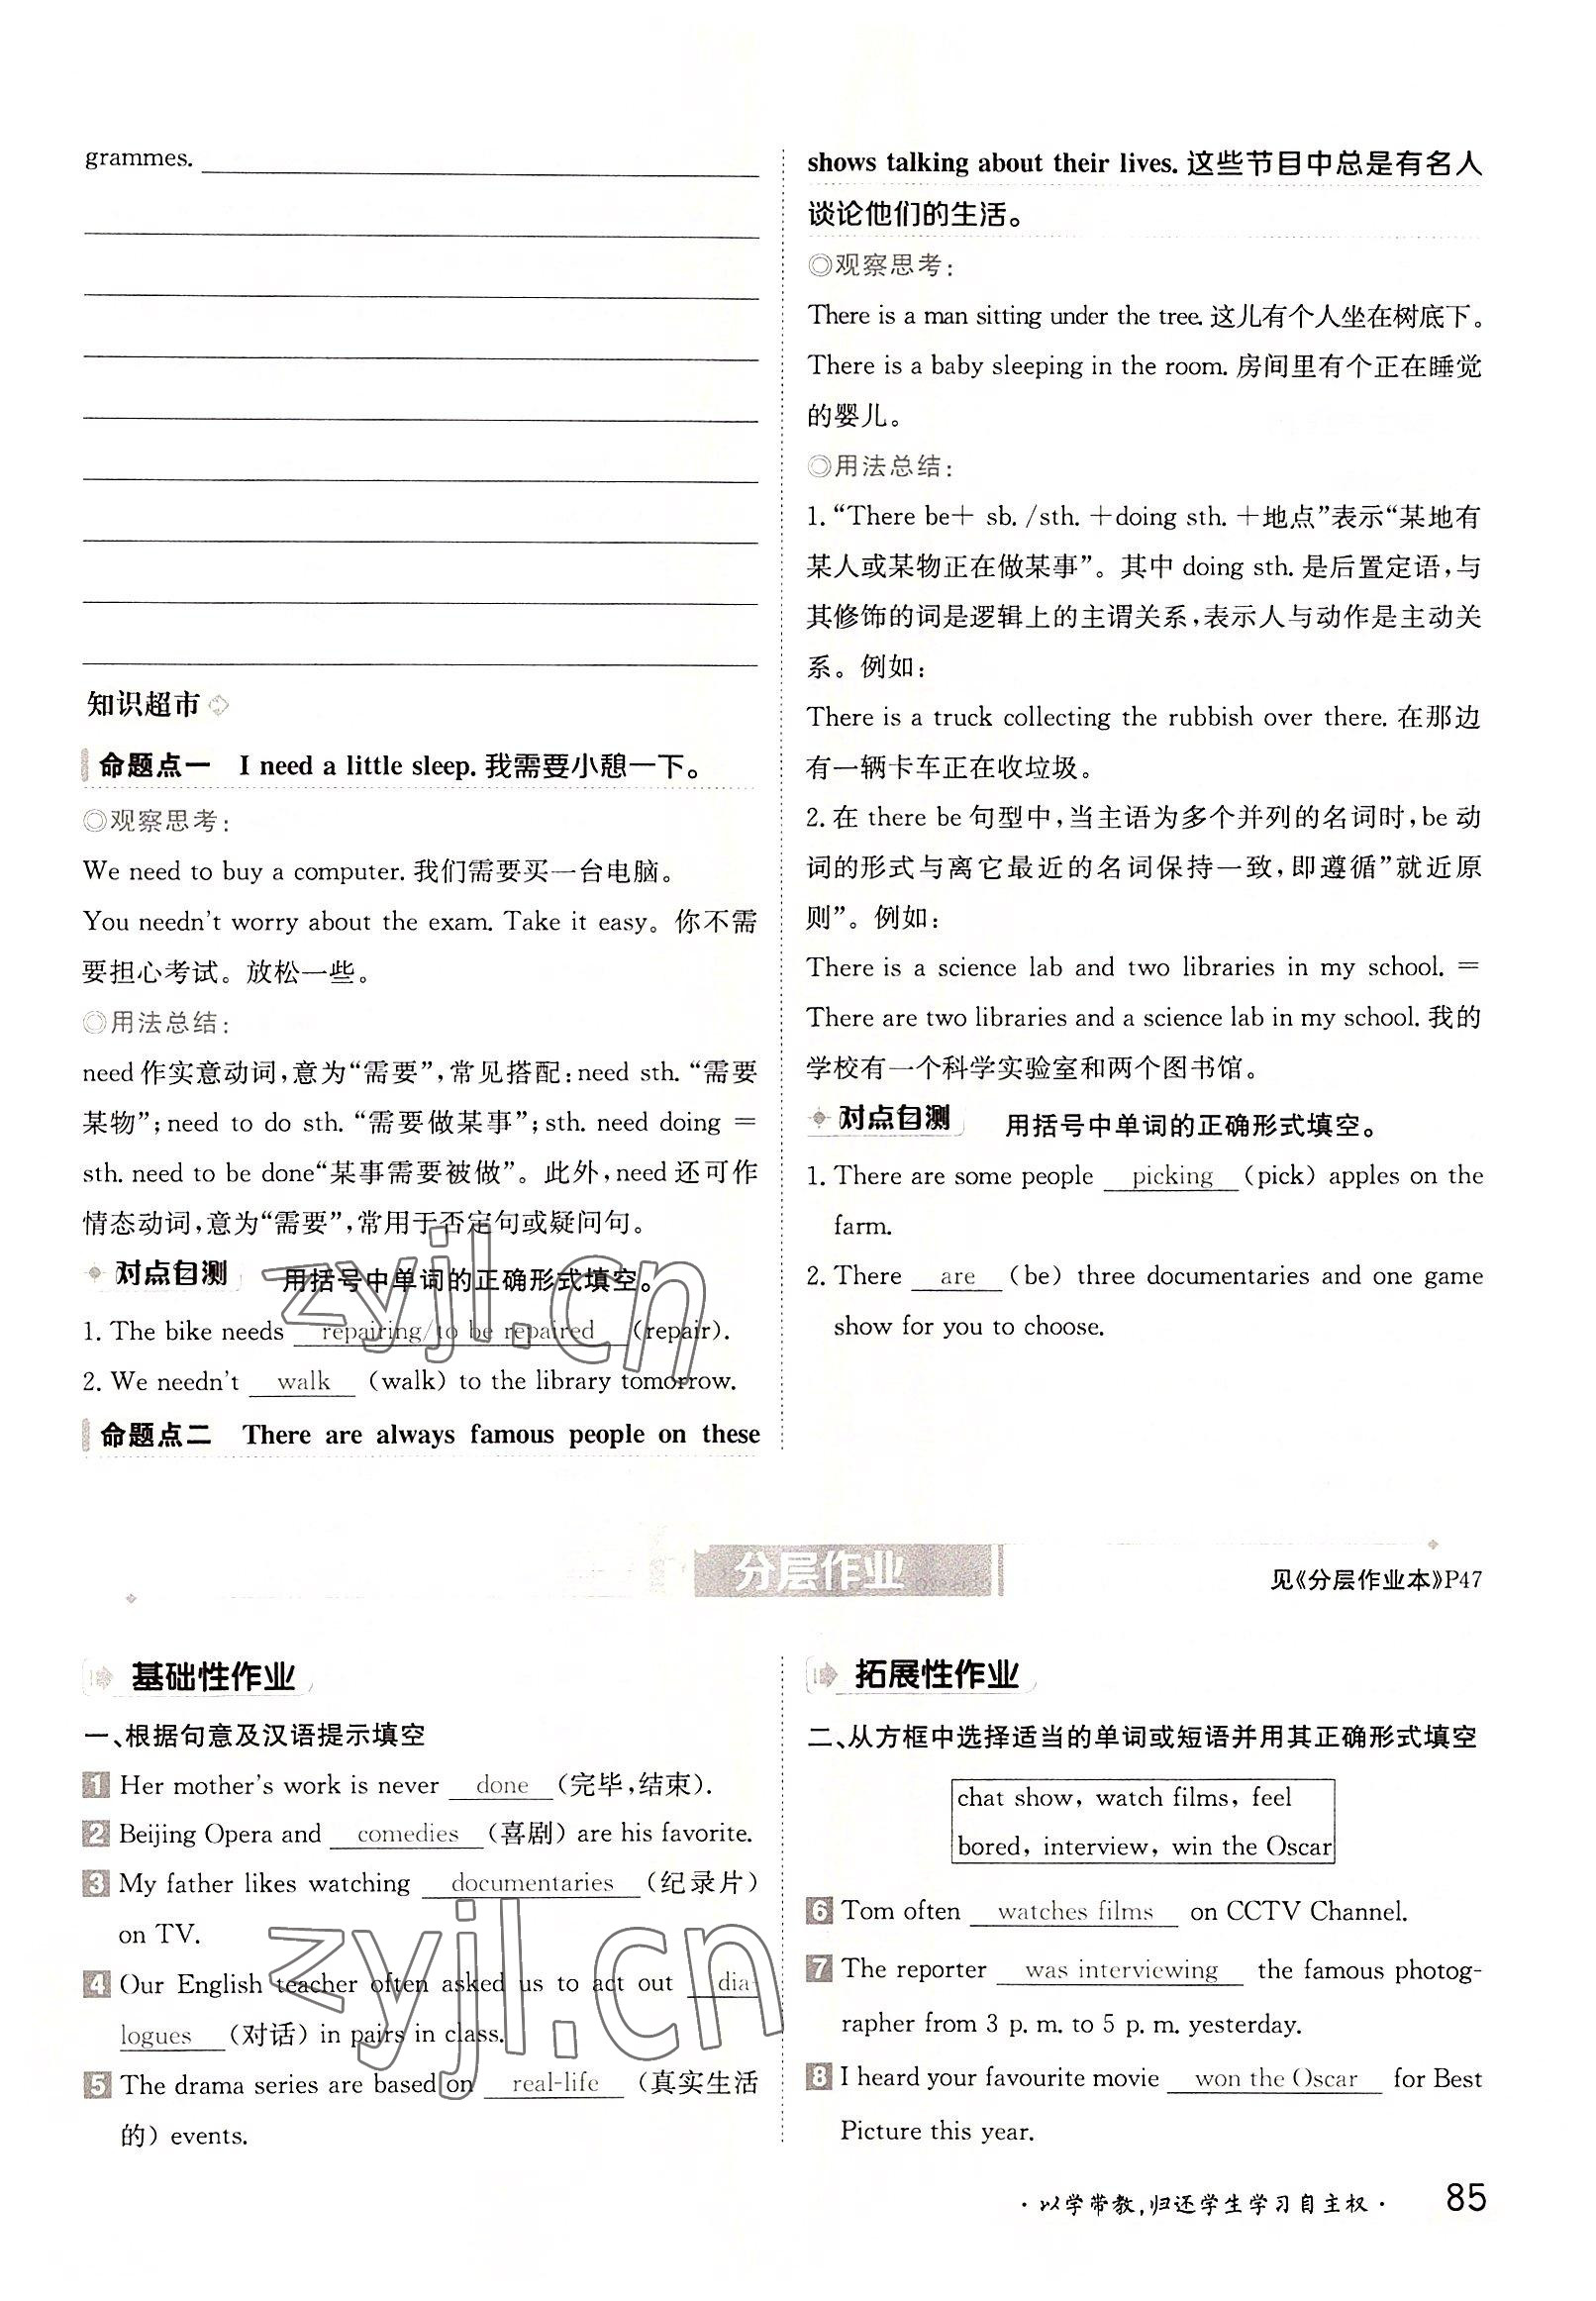 grammes.
知识超市
命题点一 I need a little sleep. 我需要小憩一下。
◎观察思考:
We need to buy a computer. 我们需要买一台电脑。
You needn't worry about the exam. Take it easy。你不需
要担心考试。放松一些。
◎用法总结:
need作实意动词,意为“需要”,常见搭配:need sth. “需要
某物”;need to do sth. “需要做某事”;sth. need doing =
sth. need to be done“某事需要被做”。此外,need还可作
情态动词,意为“需要”,常用于否定句或疑问句。
对点自测 用括号中单词的正确形式填空。
1. The bike needs repairing/to be repaired (repair).
2. We needn't walk (walk) to the library tomorrow.
命题点二 There are always famous people on these
shows talking about their lives. 这些节目中总是有名人
谈论他们的生活。
◎观察思考:
There is a man sitting under the tree. 这儿有个人坐在树底下。
There is a baby sleeping in the room. 房间里有个正在睡觉
的婴儿。
◎用法总结:
1. “There be+ sb. /sth. +doing sth. +地点”表示“某地有
某人或某物正在做某事”。其中 doing sth. 是后置定语,与
其修饰的词是逻辑上的主谓关系,表示人与动作是主动关
系。例如:
There is a truck collecting the rubbish over there. 在那边
有一辆卡车正在收垃圾。
2. 在 there be 句型中,当主语为多个并列的名词时,be 动
词的形式与离它最近的名词保持一致,即遵循”就近原
则”。例如:
There is a science lab and two libraries in my school. =
There are two libraries and a science lab in my school. 我的
学校有一个科学实验室和两个图书馆。
对点自测 用括号中单词的正确形式填空。
1. There are some people picking (pick) apples on the
farm.
2. There are (be) three documentaries and one game
show for you to choose.
分层作业
见《分层作业本》P47
基础性作业
一、根据句意及汉语提示填空
1 Her mother's work is never done (完毕,结束).
2 Beijing Opera and comedies (喜剧) are his favorite.
3 My father likes watching documentaries (纪录片)
on TV.
4 Our English teacher often asked us to act out dia-
logues (对话) in pairs in class.
5 The drama series are based on real-life (真实生活
的) events.
拓展性作业
二、从方框中选择适当的单词或短语并用其正确形式填空
chat show, watch films, feel
bored, interview, win the Oscar
6 Tom often watches films on CCTV Channel.
7 The reporter was interviewing the famous photog-
rapher from 3 p. m. to 5 p. m. yesterday.
8 I heard your favourite movie won the Oscar for Best
Picture this year.
·以学带教,归还学生学习自主权· 85
zyjl.cn
zyjl.cn